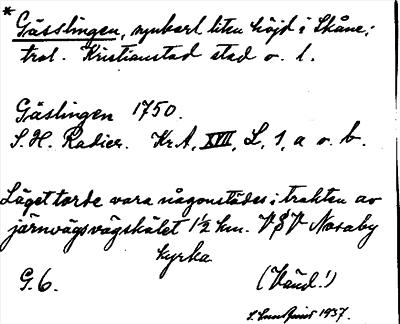 * Gässlingen, synbart liten höjd i Skåne;
trol. Kristianstad stad o. l.
Gäslingen 1750.
S. H. Radier. Kr. A, XVII, L, 1, a o. b.
Läget torde vara någonstädes i trakten av
järnvägsvägskälet 1½ km. VSV Nosaby
kyrka
G. 6. (Vänd!)
1937.